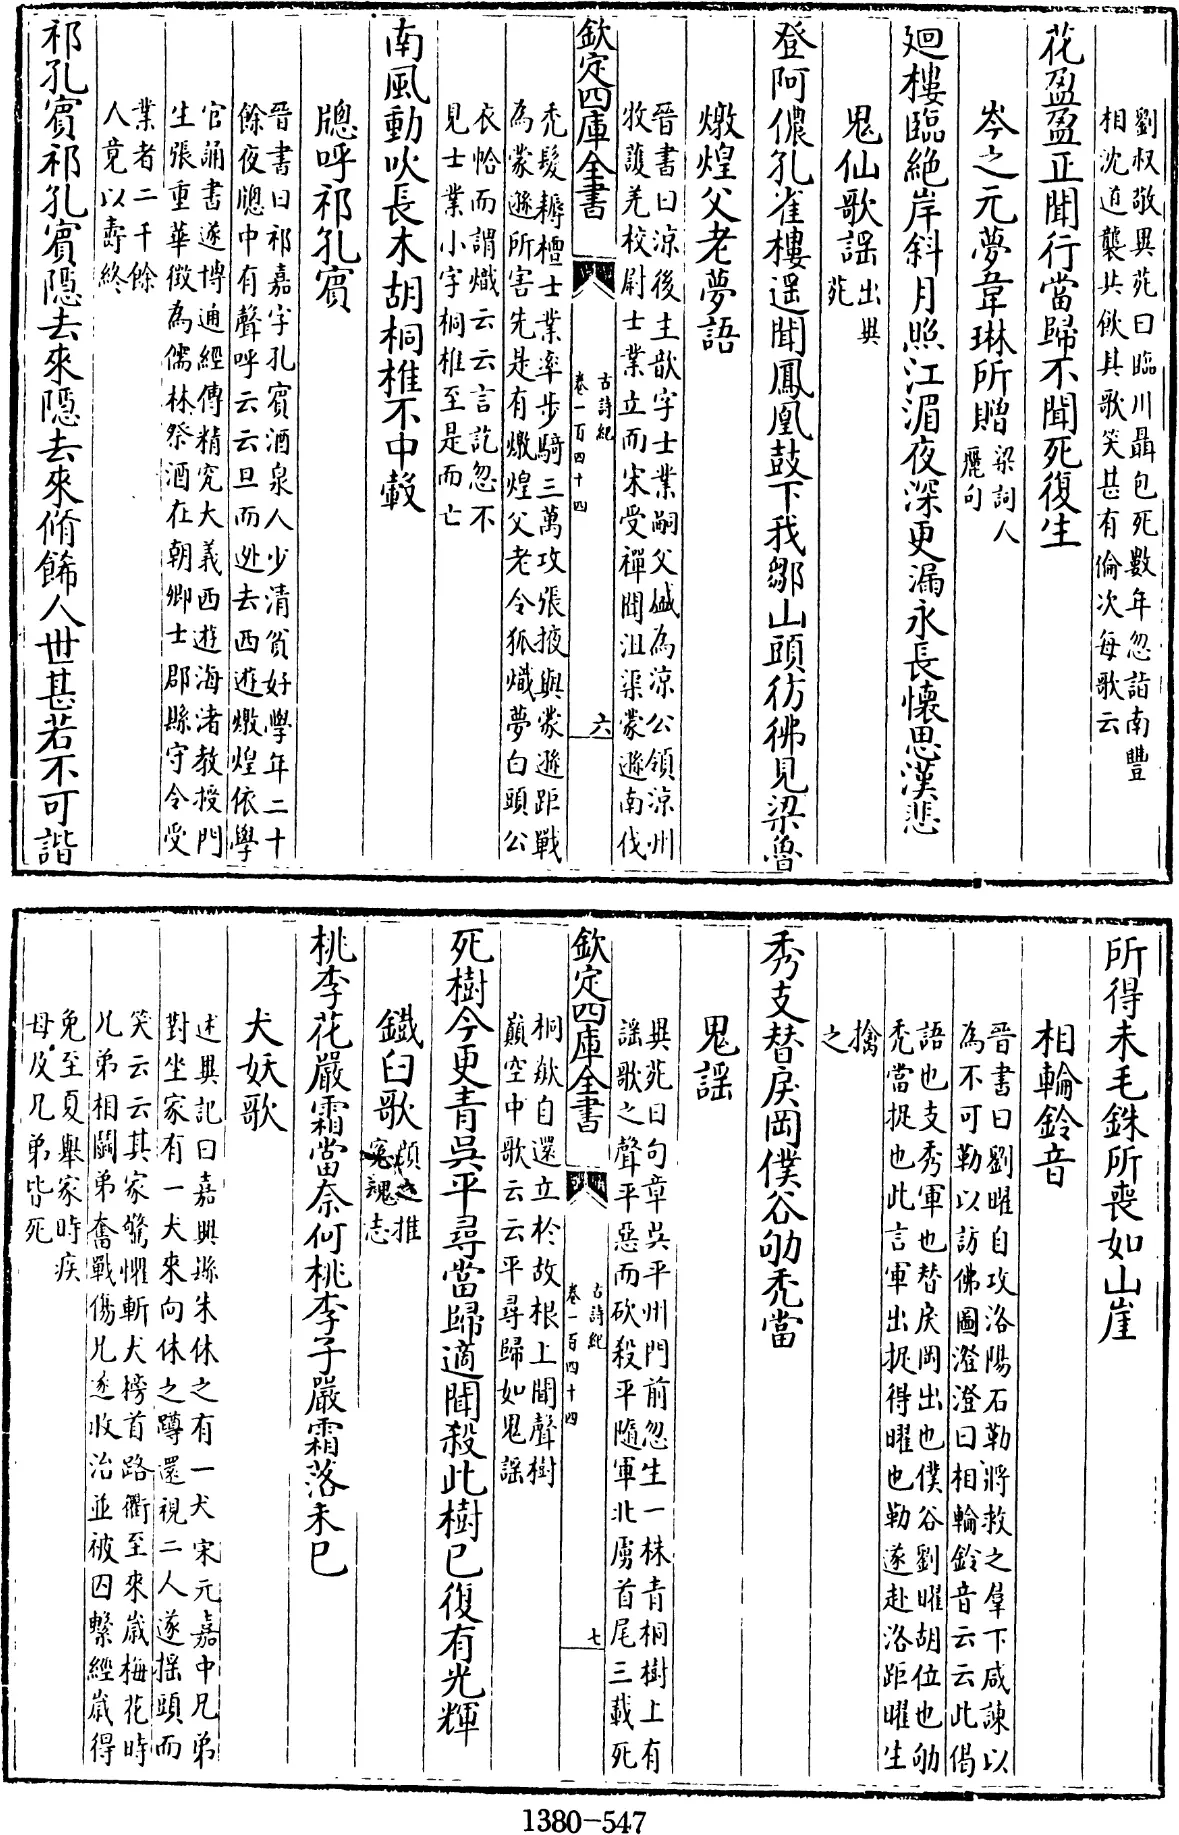 劉叔敬異苑曰臨川聶包死數年忽詣南豐
相沈道襲共飲其歌笑甚有倫次每歌云
花盈盈正聞行當歸不聞死復生
岑之元夢韋琳所贈
梁詞人
麗句
廻樓臨絶岸斜月照江湄夜深更漏永長懷思漢悲
鬼仙歌謡
出異
苑
登阿儂孔雀樓遥聞鳳凰鼓下我鄒山頭彷彿見梁魯
燉煌父老夢語
晉書曰涼後主歆字士業嗣父盛為涼公領涼州
牧護羌校尉士業立而宋受禪聞沮渠蒙遜南伐
欽定四庫全書
古詩紀
卷一百四十四
六
禿髮耨檀士業率步騎三萬攻張掖與蒙遜距戰
為蒙遜所害先是有燉煌父老令狐熾夢白頭公
衣帢而謂熾云云言訖忽不
見士業小字桐椎至是而亡
南風動吹長木胡桐椎不中轂
牕呼祁孔賓
晉書曰祁嘉字孔賓酒泉人少清貧好學年二十
餘夜牕中有聲呼云云旦而逃去西遊燉煌依學
官誦書遂博通經傳精究大義西遊海渚教授門
生張重華徵為儒林祭酒在朝卿士郡縣守令受
業者二千餘
人竟以壽終
祁孔賓祁孔賓隱去來隱去來脩餙人世甚若不可諧
所得未毛銖所喪如山崖
相輪鈴音
晉書曰劉曜自攻洛陽石勒將救之羣下咸諫以
為不可勒以訪佛圖澄澄曰相輪鈴音云云此偈
語也支秀軍也替戾岡出也僕谷劉曜胡位也劬
禿當捉也此言軍出捉得曜也勒遂赴洛距曜生
擒
之
秀支替戾岡僕谷劬禿當
鬼謡
異苑曰句章吳平州門前忽生一株青桐樹上有
謡歌之聲平惡而砍殺平隨軍北虜首尾三載死
欽定四庫全書
古詩紀
卷一百四十四
七
桐欻自還立於故根上聞聲樹
巔空中歌云云平尋歸如鬼謡
死樹今更青吳平尋當歸適聞殺此樹已復有光輝
鐵臼歌
顔之推
寃魂志
桃李花嚴霜當奈何桃李子嚴霜落未已
犬妖歌
述異記曰嘉興縣朱休之有一犬宋元嘉中兄弟
對坐家有一犬來向休之蹲還視二人遂揺頭而
笑云云其家驚懼斬犬榜首路衢至來歲梅花時
兄弟相鬬弟奮戰傷兄遂收治並被囚繫經歲得
免至夏舉家時疾
母及兄弟皆死
1380-547